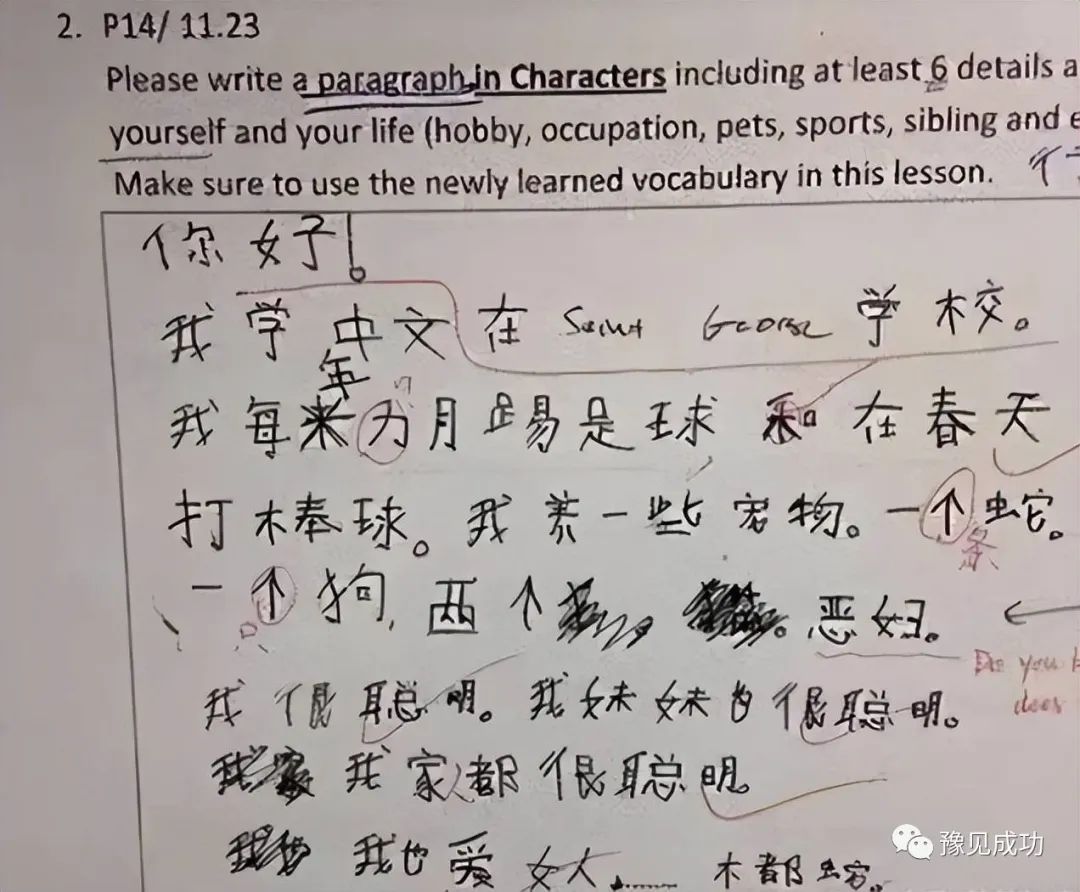 2. P14/ 11.23
Please write a paragraph in Characters including at least 6 details a
yourself and your life (hobby, occupation, pets, sports, sibling and e
Make sure to use the newly learned vocabulary in this lesson.
你好!
我学中文在 Saint George 学校。
年
我每 力月踢是球和在春天
打棒球。我养一些宠物。一个蛇。
条
一个狗,两个 。恶妇。
只
Do you
does
我很聪明。我妹妹也很聪明。
我家都很聪明。
我也爱女人 木都
豫见成功